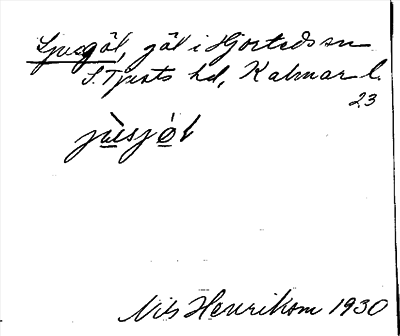 Ljusgöl, göl i Hjorteds sn
S. Tjusts hd, Kalmar l.
23
jùsjö́l
Nils Henrikson 1930